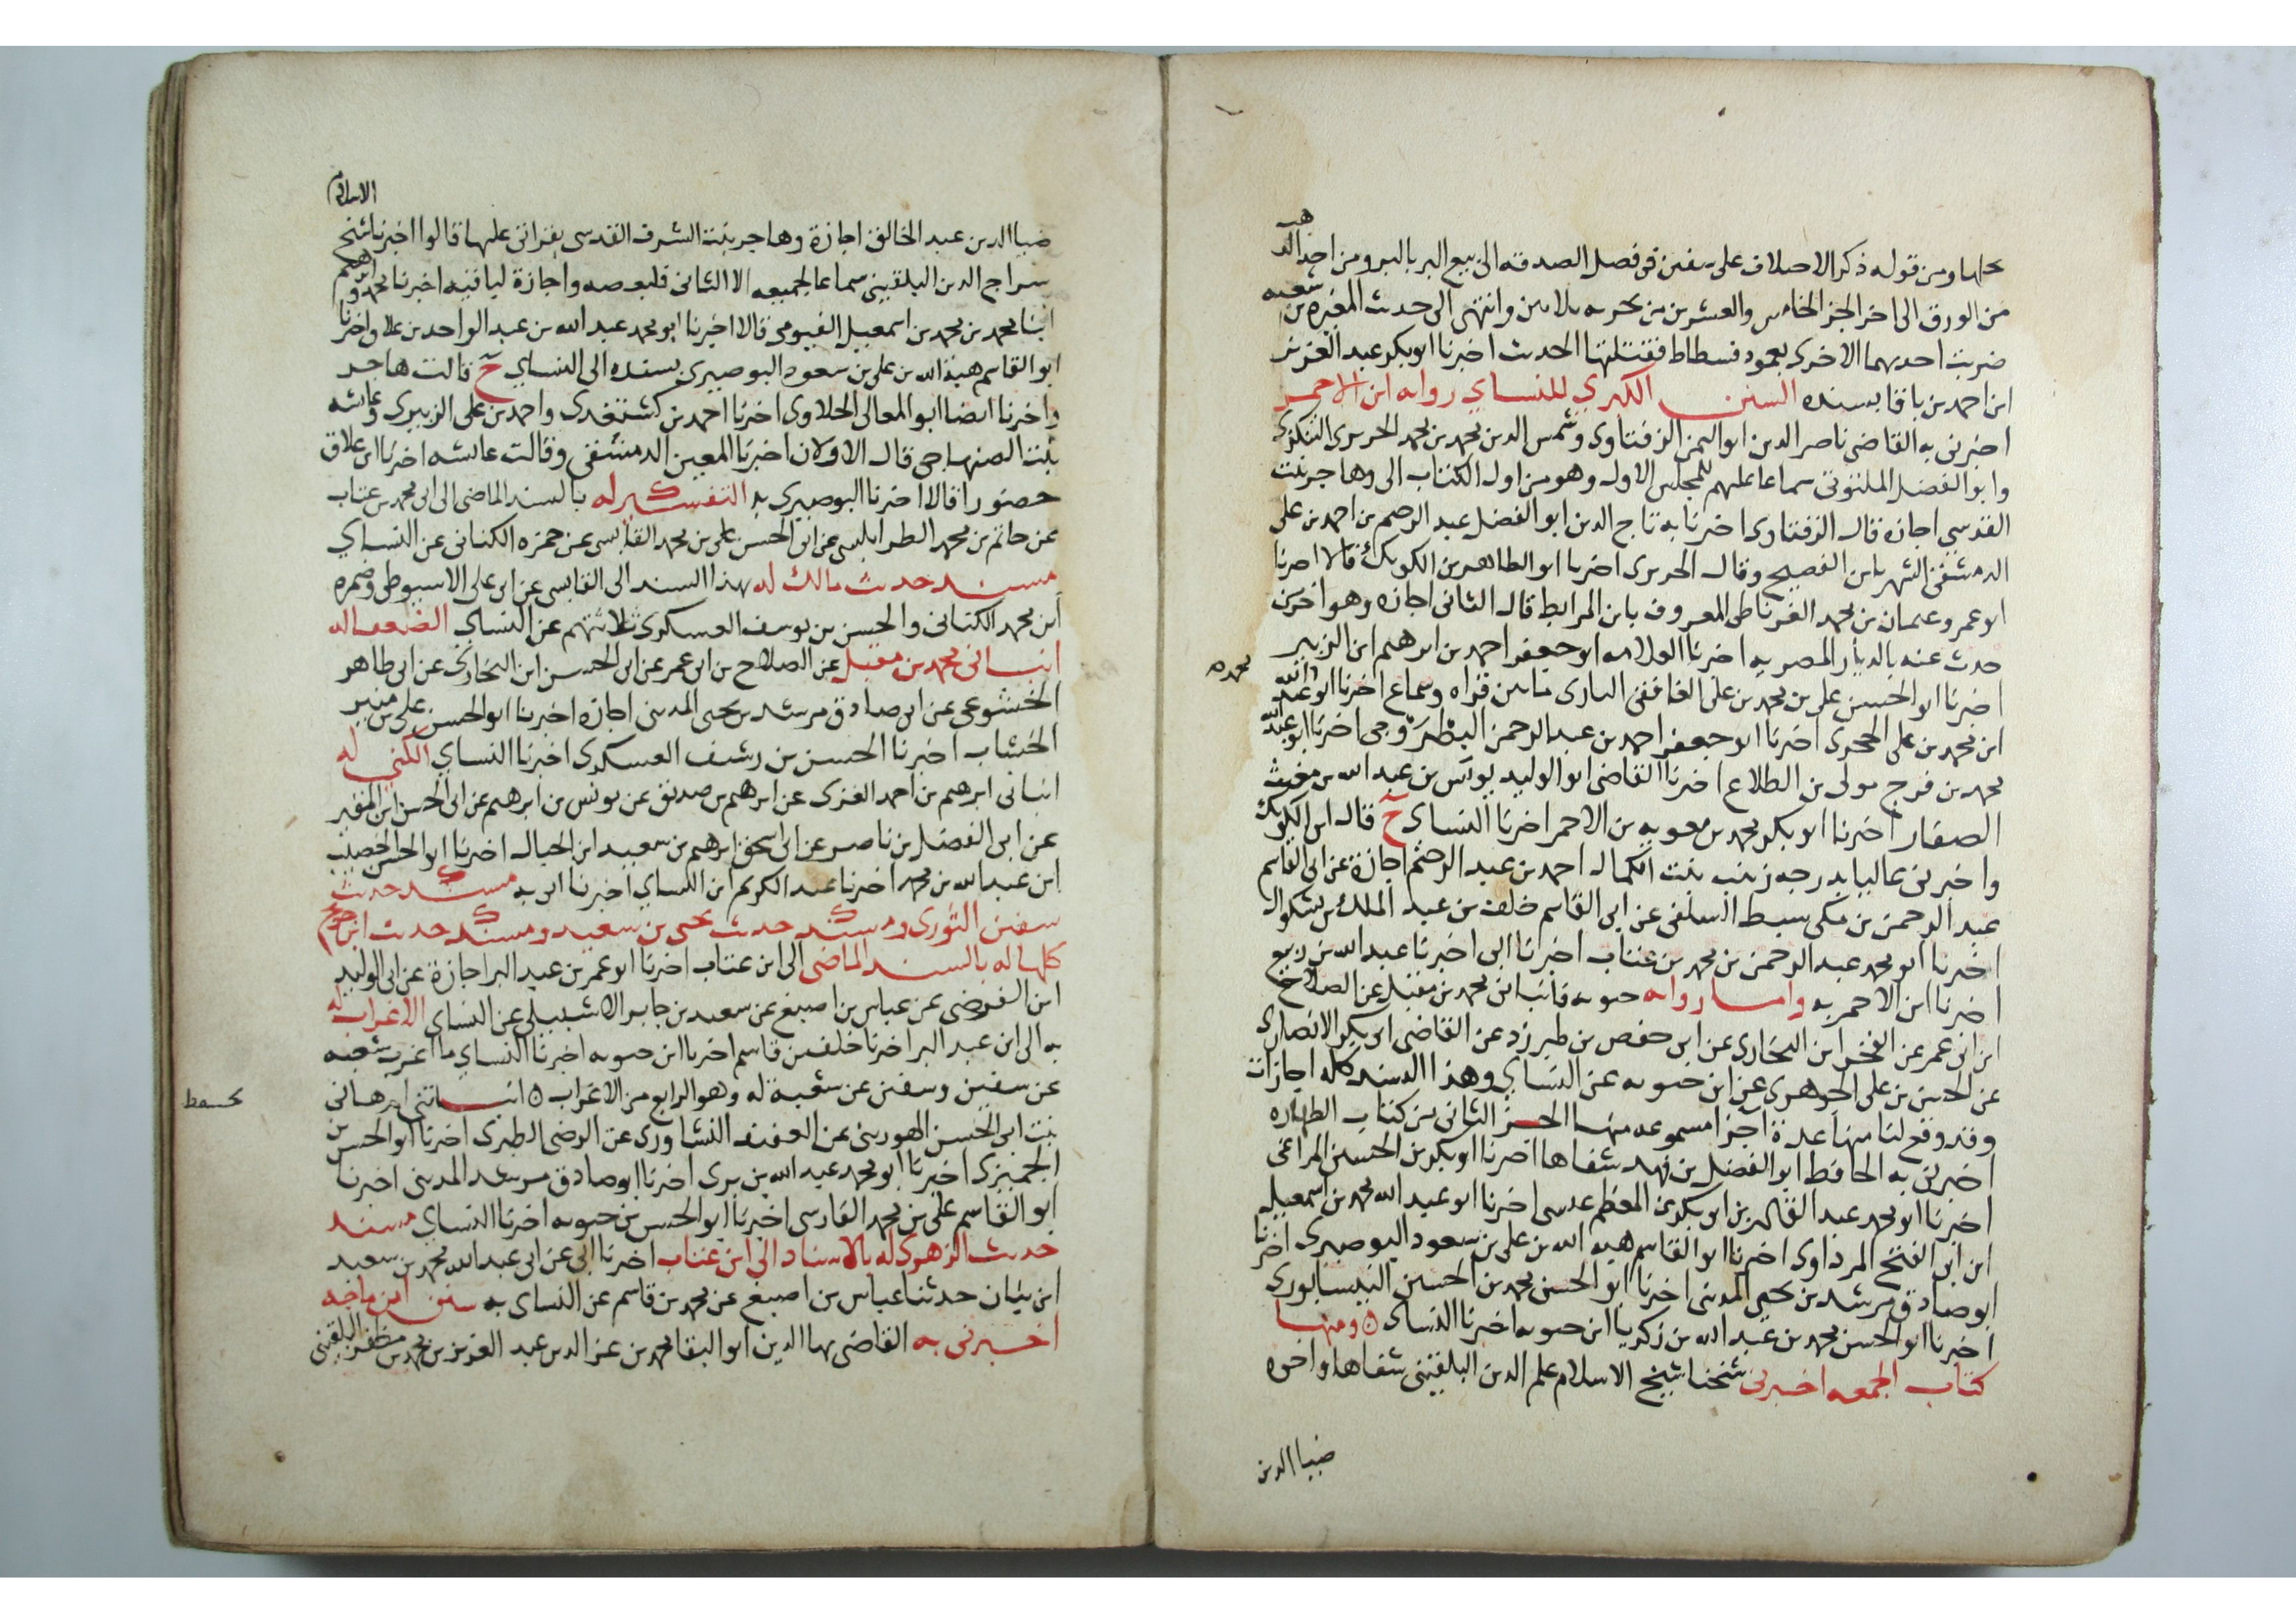 ومن قوله ذكر الاختلاف على سفين في فصل الصدقه الى بيع البر بالبر ومن اخذ الذهب
من الورق الى اخر الجز الخامس والعشرين من وانتهى الى حديث المغيره بن شعبه
ضربت احديهما الاخرى بعمود فسطاط فقتلتها الحديث اخبرنا ابو بكر عبد العزيز
ابن احمد بن باقا بسنده السنن الكبرى للنساي رواية ابن الاحمر
اخبرني به القاضي ناصر الدين ابو اليمن الزفتاوي وشمس الدين محمد بن محمد الحريري التنكزي
وابو الفضل الملتوتي سماعا عليهم للمجلس الاول وهو من اول الكتاب الى وهاجر بنت
القدسي اجازه قال الزفتاوي اخبرنا به تاج الدين ابو الفضل عبد الرحيم بن احمد بن علي
الدمشقي الشهير بابن الفصيح وقال الحريري اخبرنا ابو الطاهر بن الكويك قالا اخبرنا
ابو عمرو عثمان بن محمد الغرناطي المعروف بابن المرابط قال الثاني اجازه وهو اخر من
حدث عنه بالديار المصريه اخبرنا العلامه ابو جعفر احمد بن ابرهيم ابن الزبير
اخبرنا ابو الحسن علي بن محمد بن علي الغافقي الشاري مابين قراه وسماع اخبرنا ابو عبد الله
ابن محمد بن علي الحجري اخبرنا ابو جعفر احمد بن عبد الرحمن البطروجي اخبرنا ابو عبد الله
محمد بن فرج مولى بن الطلاع اخبرنا القاضي ابو الوليد يونس بن عبد الله بن مغيث
الصفار اخبرنا ابو بكر محمد بن معويه بن الاحمر اخبرنا النساي ح قال ابن الكويك
واخبرتني عاليا بدرجه زينب بنت الكمال احمد بن عبد الرحيم اجازة عن ابي القاسم
عبد الرحمن بن مكي سبط السلفي عن ابي القاسم خلف بن عبد الملك بن بشكوال
اخبرنا ابو محمد عبد الرحمن بن محمد بن عتاب اخبرنا ابي اخبرنا عبد الله بن ربيع
اخبرنا ابن الاحمر به واما رواية حيويه فانباني محمد بن مقبل عن الصلاح
ابن ابي عمر عن الفخر ابن البخاري عن ابي حفص بن طبرزد عن القاضي ابي بكر الانصاري
عن الحسن بن علي الجوهري عن ابن حيويه عن النساي وهذا السند كله اجازات
وقد وقع لنا منها عدة اجزا مسموعه منها الجز الثاني من كتاب الطهاره
اخبرني به الحافظ ابو الفضل بن فهد شفاها اخبرنا ابو بكر بن الحسين المراغي
اخبرنا ابو محمد عبد القادر بن ابو بكر بن المعظم عيسى اخبرنا ابو عبد الله محمد بن اسمعيل
ابن ابي الفتح المرداوي اخبرنا ابو القاسم هبه الله بن علي بن سعود البوصيري اخبرنا
ابو صادق مرشد بن يحيى المديني اخبرنا ابو الحسن محمد بن الحسين النيسابوري
اخبرنا ابو الحسن محمد بن عبد الله بن زكريا ابن حيويه اخبرنا النساي ومنها
كتاب الجمعه اخبرني شيخنا شيخ الاسلام علم الدين البلقيني شفاها واخوه
ضيا الدين
ضيا الدين عبد الخالق اجازة وهاجر بنت الشرف القدسي بقراتي عليها قالوا اخبرنا شيخ الاسلام
سراج الدين البلقيني سماعا لجميعه الا الثاني فلبعضه واجازة لباقيه اخبرنا محمد وابرهيم
ابنا محمد بن محمد بن اسمعيل الفيومي قالا اخبرنا ابو محمد عبد الله بن عبد الواحد بن علاق اخبرنا
ابو القاسم هبة الله بن علي بن سعود البوصيري بسنده الى النساي ح قالت هاجر
واخبرنا ايضا ابو المعالي الحلاوي اخبرنا احمد بن كشتغدي واحمد بن علي الزبيري وعايشه
بنت الصنهاجي قال الاولان اخبرنا المعين الدمشقي وقالت عايشه اخبرنا ابن علاق
حضورا قالا اخبرنا البوصيري به التفسير له بالسند الماضي الى ابي محمد بن عتاب
عن حاتم بن محمد الطرابلسي عن ابي الحسن علي بن محمد القابسي عن حمزه الكناني عن النساي
مسند حديث مالك له بهذا السند الى القابسي عن ابي علي الاسيوطي وحمزه
ابن محمد الكناني والحسن بن يوسف العسكري ثلاثتهم عن النساي الضعفا له
انباني محمد بن مقبل عن الصلاح بن ابي عمر عن ابي الحسن ابن البخاري عن ابي طاهر
الخشوعي عن ابي صادق مرشد بن يحيى المديني اجازه اخبرنا ابو الحسن علي بن منير
الخشاب اخبرنا الحسن بن رشيق العسكري اخبرنا النساي الكنى له
انباني ابرهيم بن احمد الغزي عن ابرهيم بن صديق عن يونس بن ابرهيم عن ابي الحسن ابن المقير
عن ابي الفضل بن ناصر عن ابي اسحق ابرهيم بن سعيد ابن الحبال اخبرنا ابو الحسن الخصيب
ابن عبد الله بن محمد اخبرنا عبد الكريم ابن النساي اخبرنا ابي به مسند حديث
سفين الثوري ومسند حديث يحيى بن سعيد ومسند حديث ابن جريج
كلها له بالسند الماضي الى ابن عتاب اخبرنا ابو عمر بن عبد البر اجازة عن ابي الوليد
ابن الفرضي عن عباس بن اصبغ عن سعيد بن جابر الاشبيلي عن النساي الاغراب له
به الى ابن عبد البر اخبرنا خلف بن قاسم اخبرنا ابن حيويه اخبرنا النساي ما اغرب شعبه
عن سفين وسفين عن شعبة له وهو الرابع من الاغراب انباتني ام هاني
بنت ابي الحسن الهوريني عن العفيف النشاوري عن الرضي الطبري اخبرنا ابو الحسن بن
الجميزي اخبرنا ابو محمد عبد الله بن بري اخبرنا ابو صادق مرشد المديني اخبرنا
ابو القاسم علي بن محمد الفارسي اخبرنا ابو الحسن بن حيويه اخبرنا النساي مسند
حديث الزهري له بالاسناد الى ابن عتاب اخبرنا ابي عن ابي عبد الله محمد بن سعيد
ابن نبات حدثنا عباس بن اصبغ عن محمد بن قاسم عن النساي به سنن ابن ماجه
اخبرني به القاضي بها الدين ابو البقا محمد بن عز الدين عبد العزيز بن محمد بن مظفر البلقيني